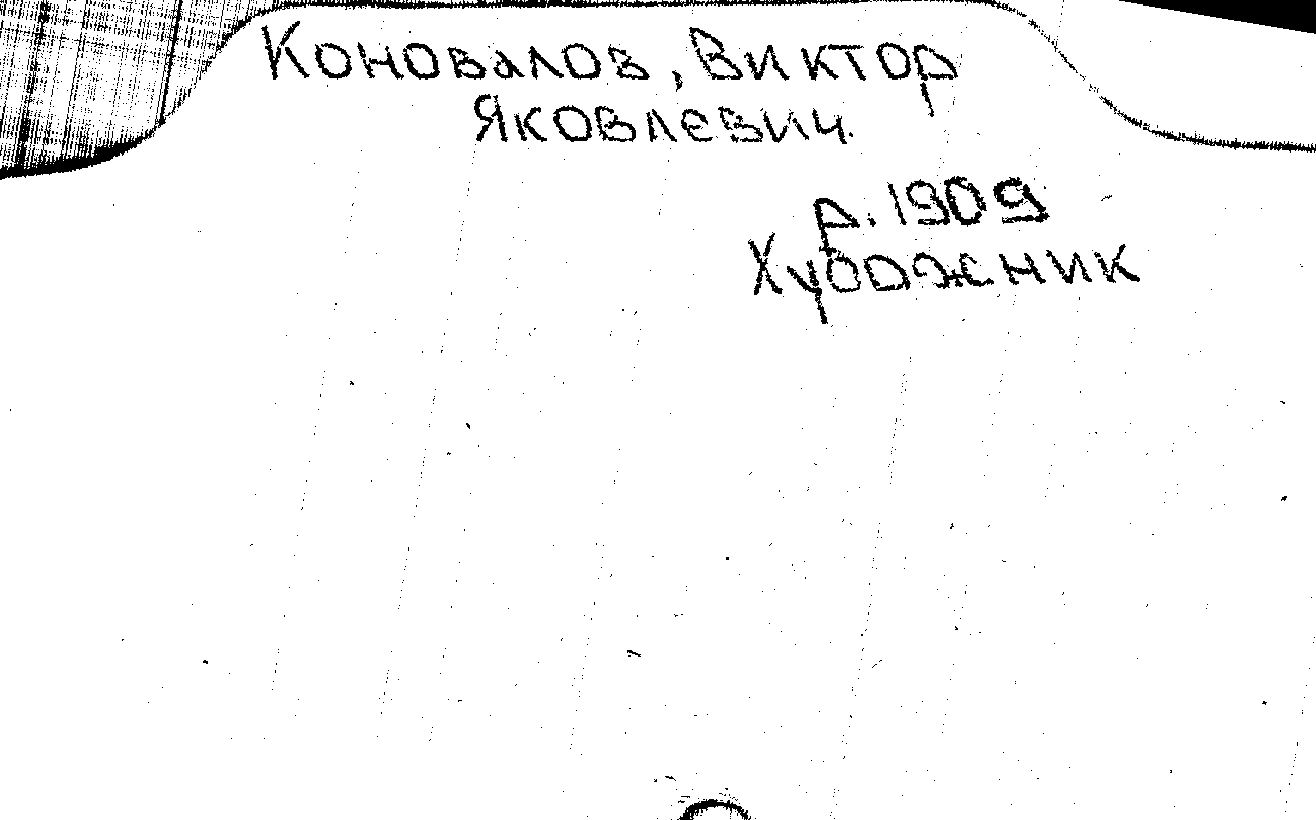 Коновалов, Виктор
Яковлевич.
р. 1909
Художник